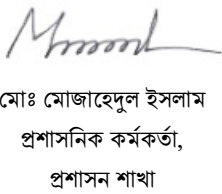 মোঃ মোজাহেদুল ইসলাম
প্রশাসনিক কর্মকর্তা,
প্রশাসন শাখা